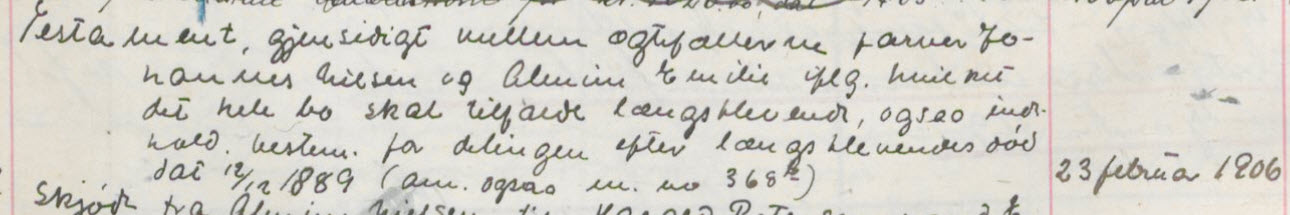 Testament, gjensidigt mellem ægtefællerne farver Jo-
hannes Nielsen og Almine Emilie iflg. hvilket
det hele bo skal tilfalde længstlevende, ogsao ind-
hold. bestem. for delingen efter længstlevendes død
dat 12/12 1889 (anm. ogsao m. no 368 b)
23 februar 1906
Skjøde fra Almine Nielsen